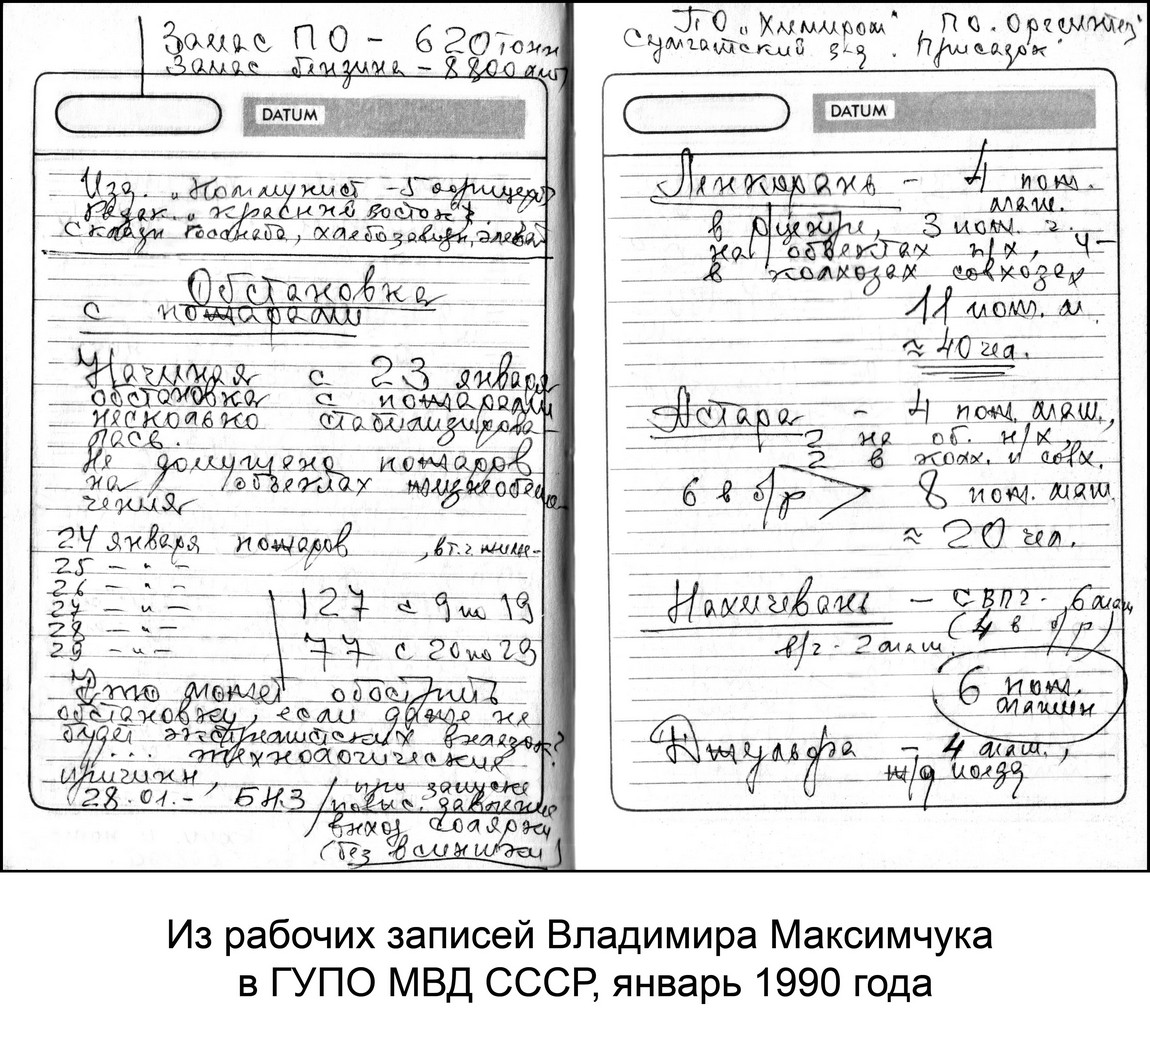 Запас ПО – 620 тонн
Запас бензина – 8800
DATUM
Изд. „Коммунист – 5 офицеров
Редак. „Красный восток".
Склады Госснаба, хлебозаводы, элеват
Обстановка
с пожарами
Начиная с 23 января
обстановка с пожарами
несколько стабилизирова-
лась.
Не допущено пожаров
на объектах жизнеобеспе-
чения
24 января пожаров , в т.ч. жилье-
25 – " –
26 – " –
27 – " – 127 с 9 по 19
28 – " –
29 – " – 77 с 20 по 29
Это может обострить
обстановку, если даже не
будет экстремистских вылазок?
... технологические
причины,
28.01. – БНЗ /при запуске
повыс. давление
выход солярки
(без вспышки)
ПО „Химпром" ПО. Оргсинтез"
Сумгаитский з-д . Присадок
DATUM
Ленкорань – 4 пож.
маш.
в центре, 3 пож. ч.
на объектах н/х, 4 –
в колхозах совхозах
11 пож. м.
≈ 40 чел.
Астара – 4 пож. маш.,
2 на об. н/х,
2 в колх. и совх.
6 в б/р > 8 пож. маш.
≈ 20 чел.
Нахичевань – СВПЧ - 6 маш
(4 в б/р)
в/ч - 2 маш.
6 пож.
машин
Джульфа – 4 маш.,
ж/д поезд
Из рабочих записей Владимира Максимчука
в ГУПО МВД СССР, январь 1990 года